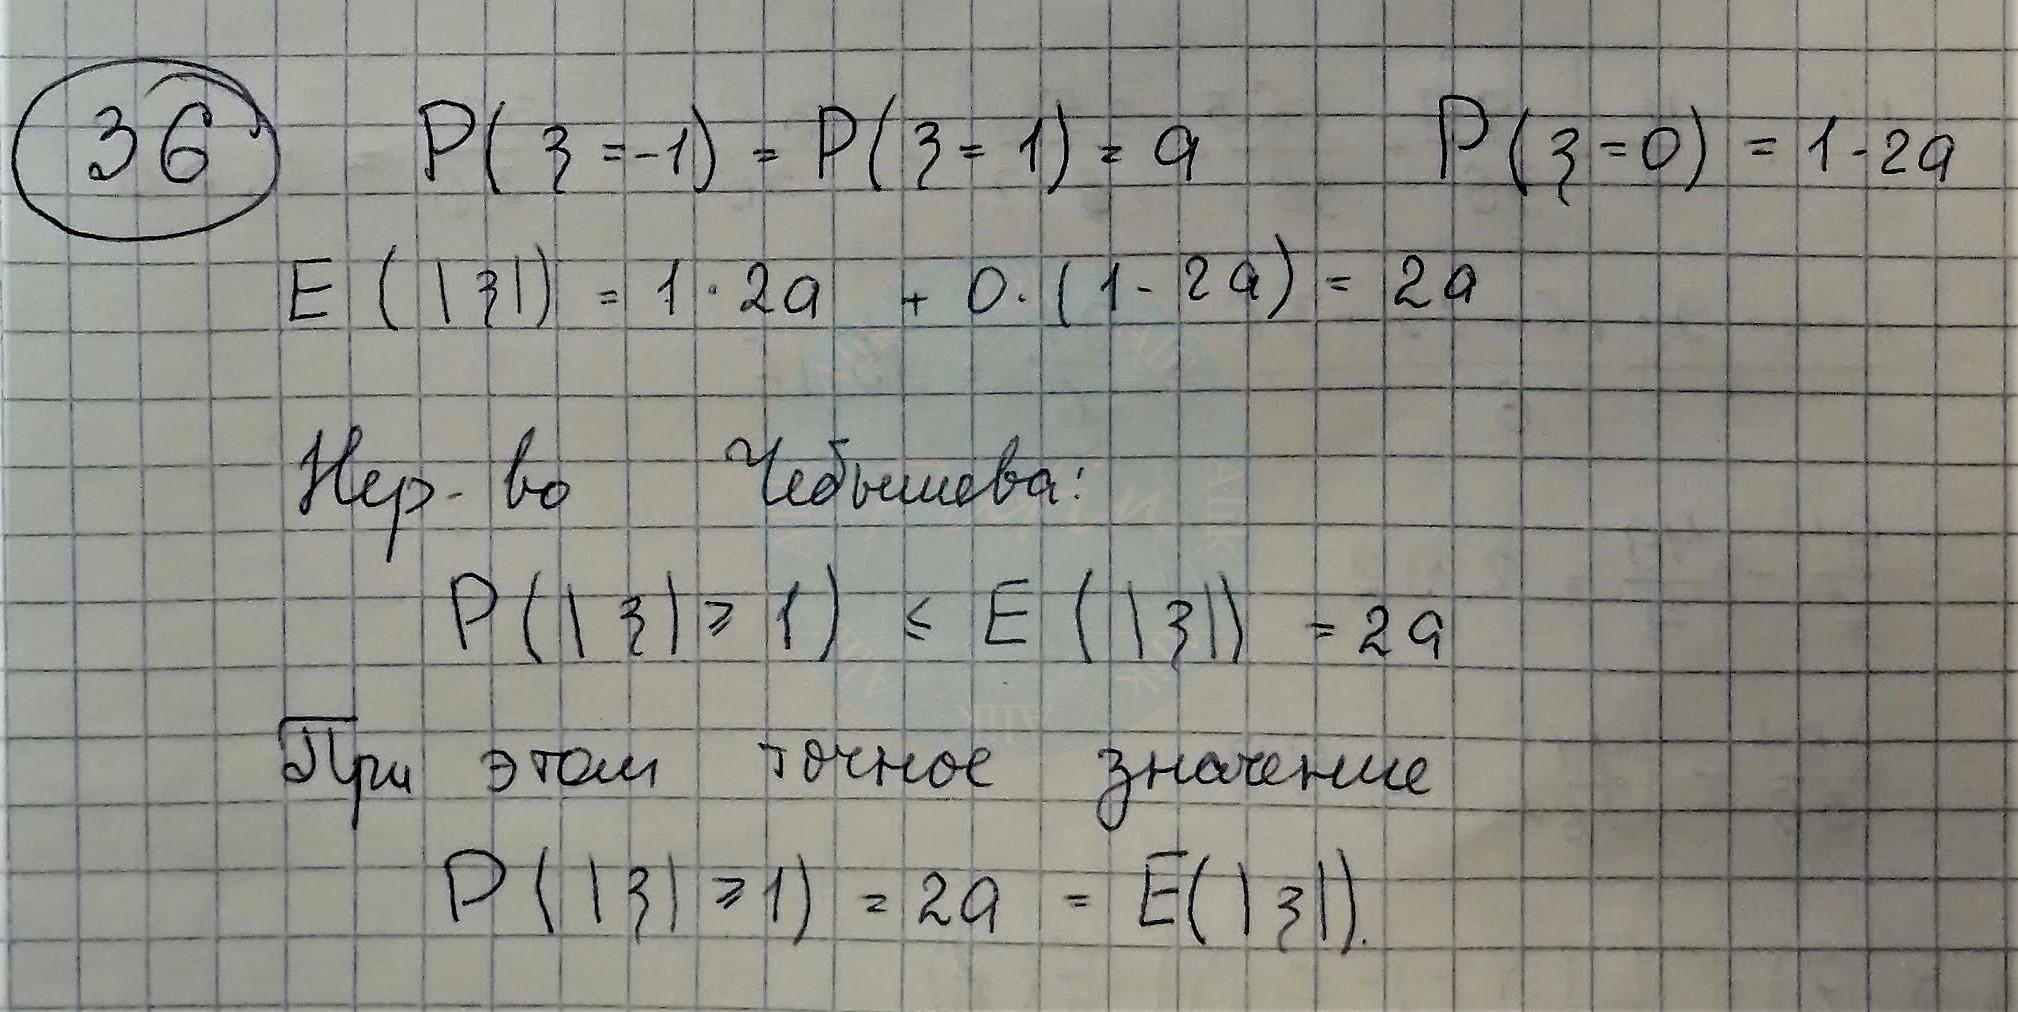 36 P(ξ=-1) = P(ξ=1) = a P(ξ=0) = 1-2a
E(|ξ|) = 1·2a + 0·(1-2a) = 2a
Нер-во Чебышева:
P(|ξ| ≥ 1) ≤ E(|ξ|) = 2a
При этом точное значение
P(|ξ| ≥ 1) = 2a = E(|ξ|).